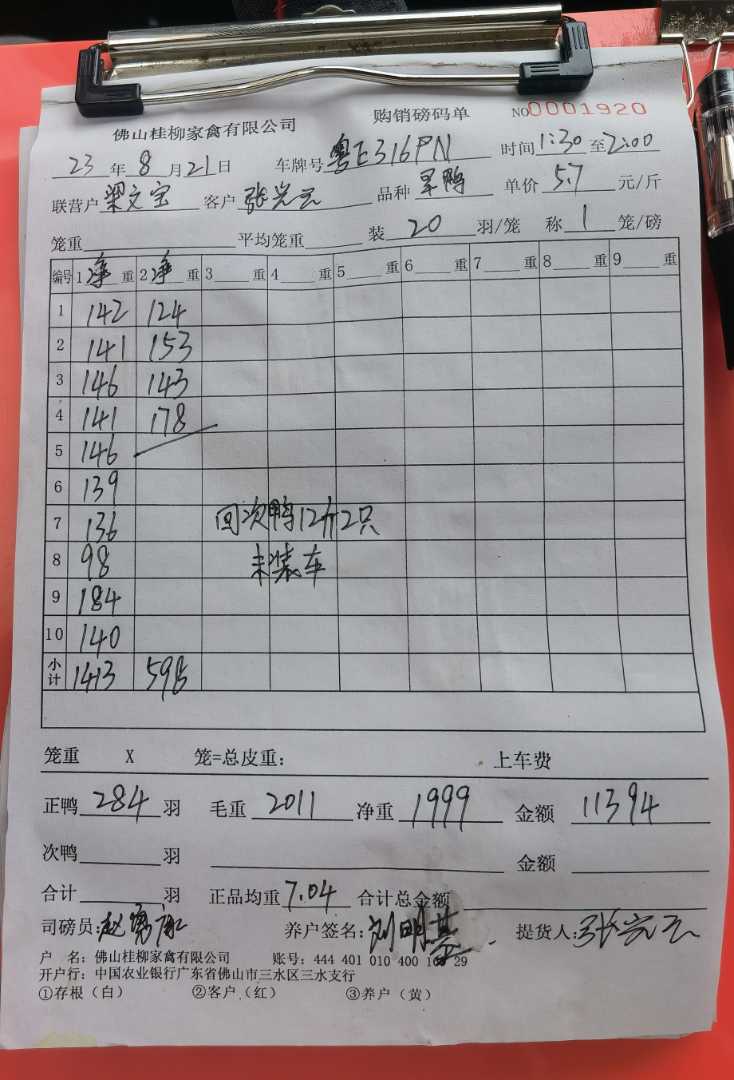 佛山桂柳家禽有限公司 购销磅码单 NO0001920
23年8月21日 车牌号粤E316PN 时间1:30至2:00
联营户梁文宝 客户张兴云 品种旱鸭 单价5.7元/斤
笼重 平均笼重 装20羽/笼 称1笼/磅
编号 1净重 2净重 3重 4重 5重 6重 7重 8重 9重
1 142 124
2 141 153
3 146 143
4 141 178
5 146
6 139
7 136 回次鸭12斤2只
8 98 未装车
9 184
10 140
小计 1413 598
笼重 X 笼=总皮重: 上车费
正鸭284羽 毛重2011 净重1999 金额11394
次鸭羽 金额
合计羽 正品均重7.04 合计总金额
司磅员: 养户签名:刘明基 提货人:张兴云
户 名: 佛山桂柳家禽有限公司 账号: 444 401 010 400 29
开户行: 中国农业银行广东省佛山市三水区三水支行
①存根(白) ②客户(红) ③养户(黄)